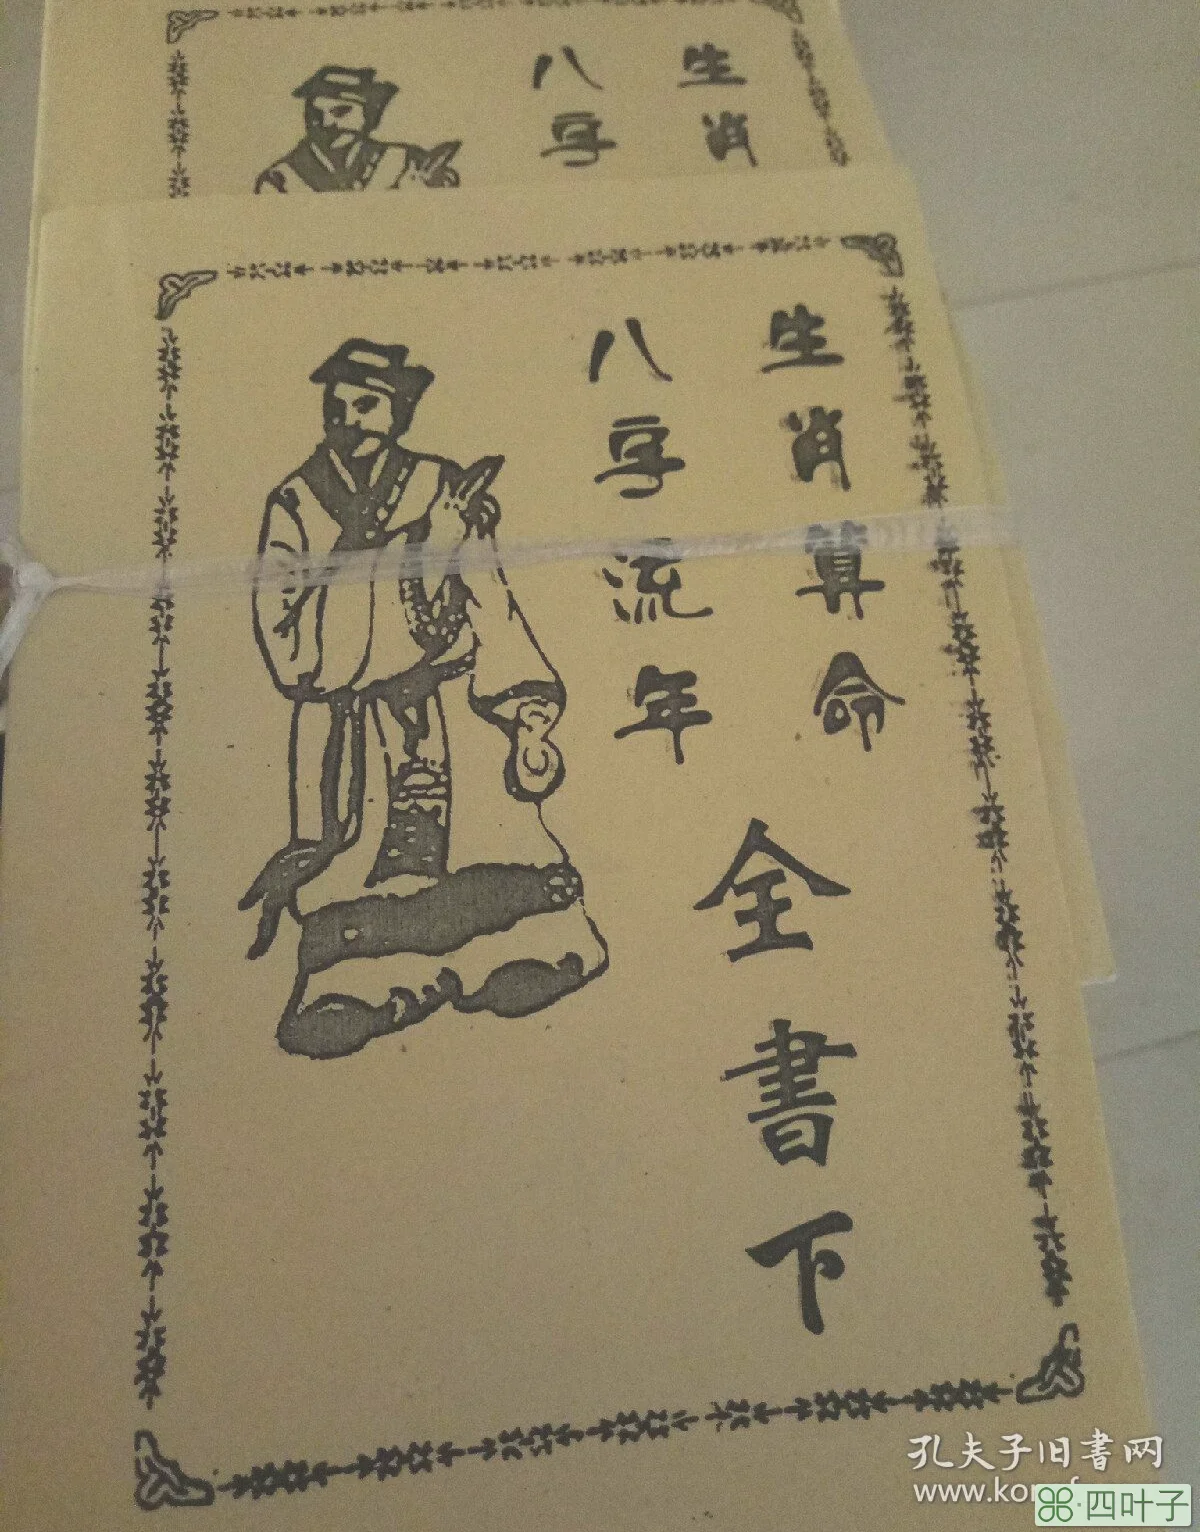 生肖
八字
生肖算命
八字流年
全書下
孔夫子旧書网
www.kongf
四叶子